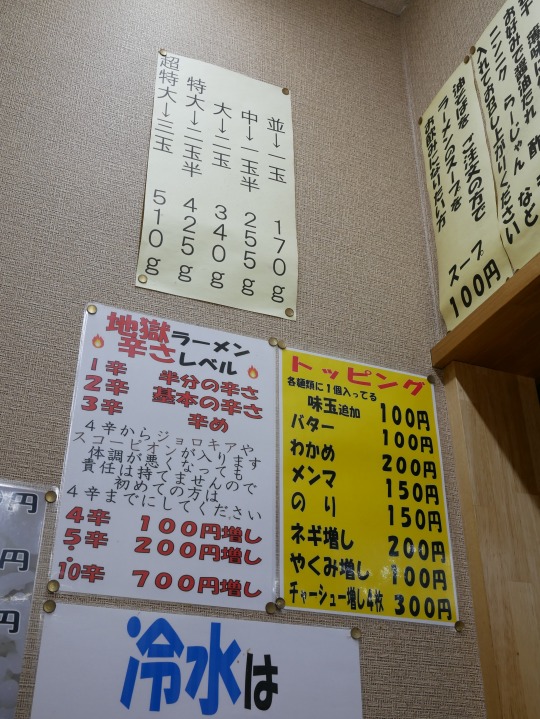 並→一玉 170g
中→一玉半 255g
大→二玉 340g
特大→二玉半 425g
超特大→三玉 510g
お好みで醤油だれ 酢
ニンニク らーじゃん など
入れてお召し上がりください
油そばを ご注文の方で
ラーメンのスープを
お飲みになりたい方
スープ
100円
地獄ラーメン
辛さレベル
1辛 半分の辛さ
2辛 基本の辛さ
3辛 辛め
4辛から、ジョロキアや
スコーピオンが入ります
体調が悪くなっても
責任は持てませんので
初めての方は
4辛までにしてください
4辛 100円増し
5辛 200円増し
10辛 700円増し
トッピング
各種類に1個入ってる
味玉追加 100円
バター 100円
わかめ 200円
メンマ 150円
のり 150円
ネギ増し 200円
やくみ増し 100円
チャーシュー増し4枚 300円
円
円
円
冷水は